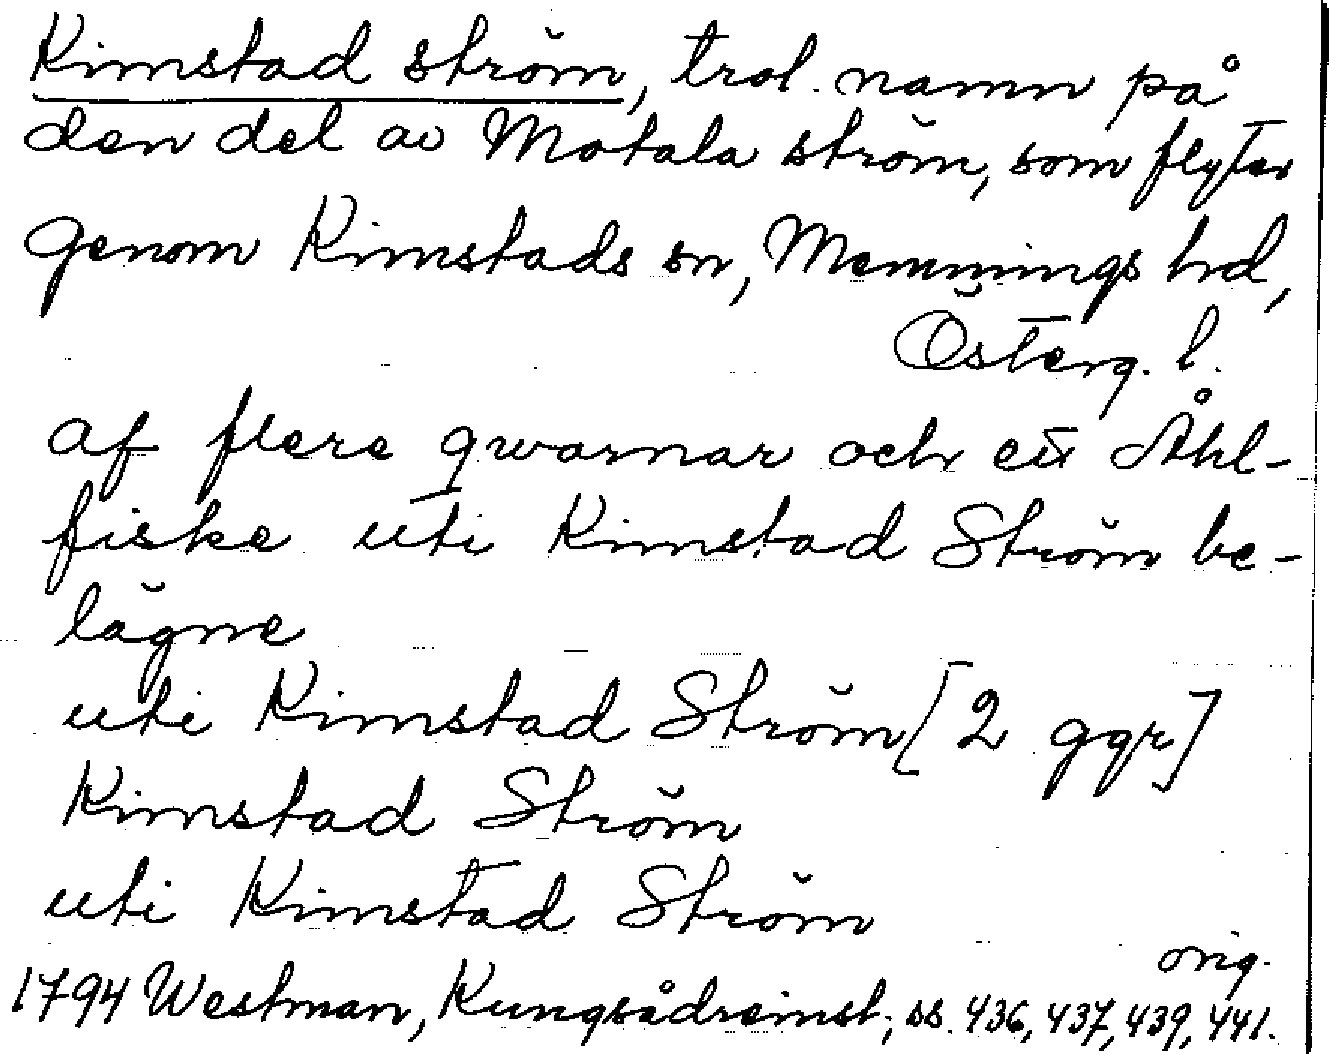 Kimstad ström, trol. namn på
den del av Motala ström, som flyter
genom Kimstads sn, Memmings hd,
Österg. l.
af flere qwarnar och ett Åhl-
fiske uti Kimstad Ström be-
lägne
uti Kimstad Ström [2 ggr]
Kimstad Ström
uti Kimstad Ström
orig.
1794 Westman, Kungsådreinst, ss. 436, 437, 439, 441.